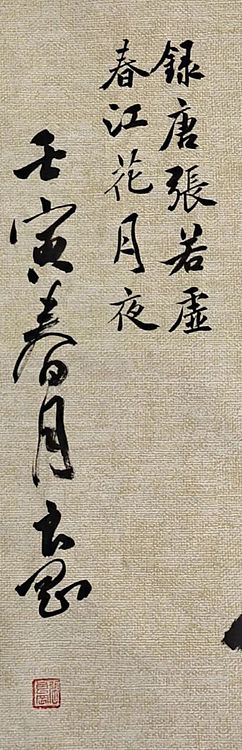 録唐張若虛
春江花月夜
壬寅春月